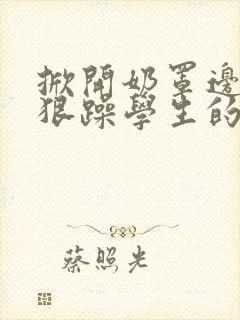 掀開奶罩邊
狠躁學生的
蔡照光